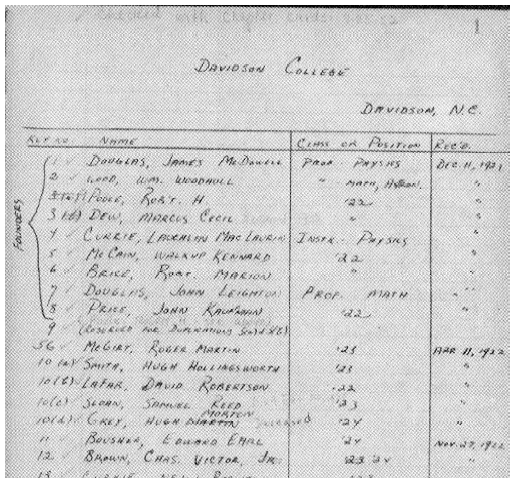 1
DAVIDSON COLLEGE
DAVIDSON, N.C.
KEY NO. NAME CLASS OR POSITION REC'D.
FOUNDERS
1 ✓ DOUGLAS, JAMES McDOWELL PROF. PHYSICS DEC. 11, 1921
2 ✓ WOOD, WM. WOODHULL " MATH, ASTRON. "
3(a) POOLE, ROBT. H. '22 "
3(b) DEW, MARCUS CECIL " "
4 ✓ CURRIE, LAUCHLAN MACLAURIN INSTR. PHYSICS "
5 ✓ McCAIN, WALKUP KENNARD '22 "
6 ✓ BRICE, ROBT. MARION " "
7 ✓ DOUGLAS, JOHN LEIGHTON PROF. MATH "
8 ✓ PRICE, JOHN '22 "
9 ✓ (RESERVED FOR DUPLICATIONS
56 ✓ McGIRT, ROGER MARTIN '23 APR 11, 1922
10(a) ✓ SMITH, HUGH HOLLINGSWORTH '23 "
10(b) ✓ LAFAR, DAVID ROBERTSON '22 "
10(c) ✓ SLOAN, SAMUEL REED '23 "
10(d) ✓ GREY, HUGH MORTON '24 "
11 ✓ BOUSHEE, EDWARD EARL '24 NOV. 27, 1922
12 ✓ BROWN, CHAS. VICTOR, JR. '23 '24 "
13